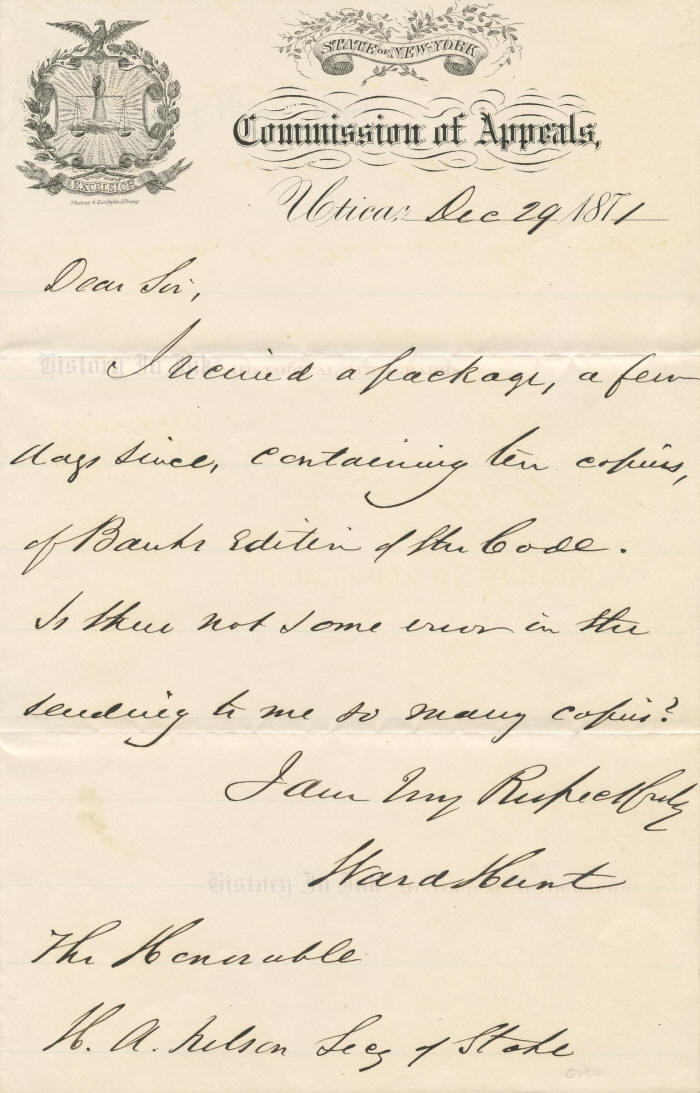 STATE OF NEW-YORK
Commission of Appeals,
EXCELSIOR
Utica, Dec 29 1871
Dear Sir,
I received a package, a few
days since, containing ten copies,
of Banks Edition of the Code.
Is there not some error in the
sending to me so many copies?
I am Very Respectfully
Ward Hunt
The Honorable
H. A. Nelson Secy of State
History In Ink
History In Ink